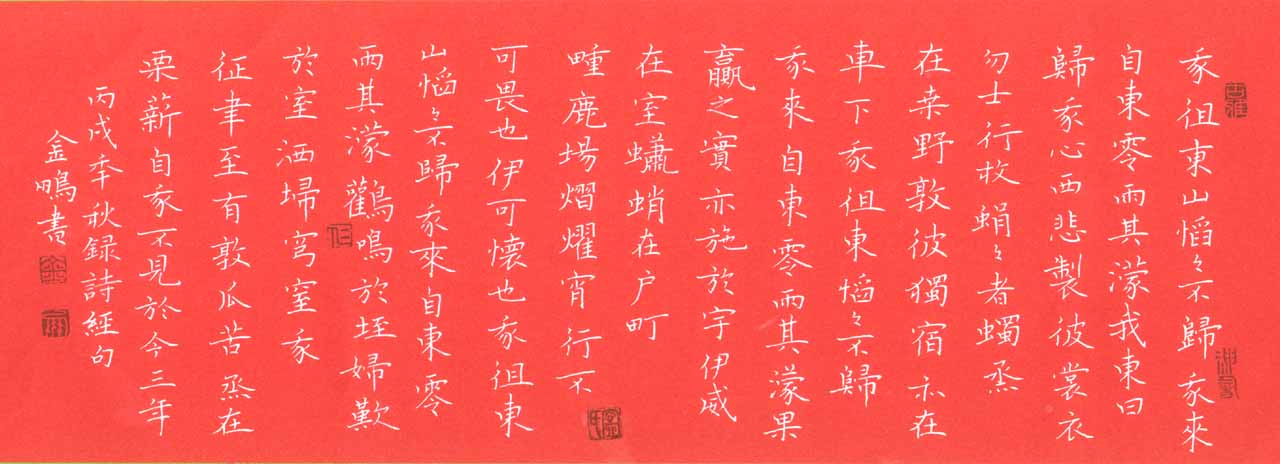 我徂東山慆々不歸我來
自東零雨其濛我東曰
歸我心西悲製彼裳衣
勿士行枚蜎々者蠋烝
在桑野敦彼獨宿亦在
車下我徂東慆々不歸
我來自東零雨其濛果
臝之實亦施於宇伊威
在室蠨蛸在户町
畽鹿場熠燿宵行不
可畏也伊可懷也我徂東
山慆々不歸我來自東零
雨其濛鸛鳴於垤婦歎
於室洒埽穹窒我
征聿至有敦瓜苦烝在
栗薪自我不見於今三年
丙戌季秋録詩經句
金鳴書